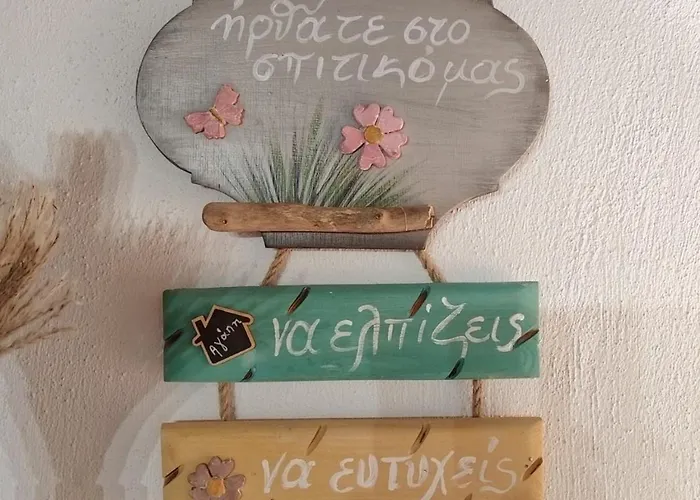 ήρθατε στο
σπιτικό μας
Αγάπη
να ελπίζεις
να ευτυχείς